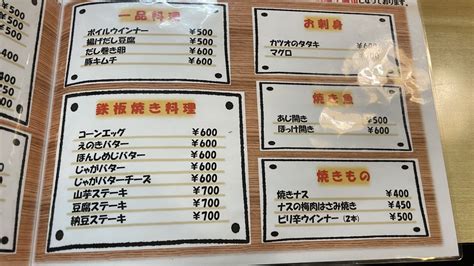 一品料理
ボイルウインナー ¥500
揚げだし豆腐 ¥500
だし巻き卵 ¥500
豚キムチ ¥600
鉄板焼き料理
コーンエッグ ¥600
えのきバター ¥600
ほんしめじバター ¥600
じゃがバター ¥600
じゃがバターチーズ ¥600
山芋ステーキ ¥700
豆腐ステーキ ¥700
納豆ステーキ ¥700
お刺身
カツオのタタキ
マグロ
焼き魚
あじ開き ¥500
ほっけ開き ¥600
焼きもの
焼きナス ¥400
ナスの梅肉はさみ焼き ¥450
ピリ辛ウインナー(2本) ¥500